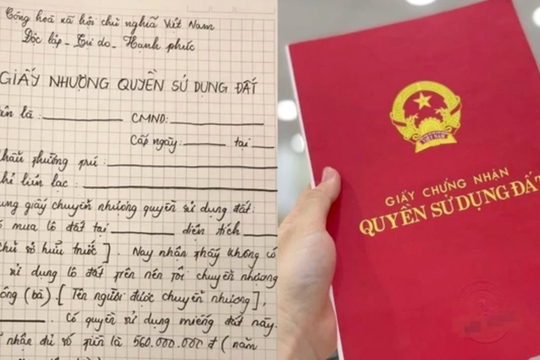 Cộng hoà xã hội chủ nghĩa Việt Nam
Độc lập - Tự do - Hạnh phúc
GIẤY NHƯỢNG QUYỀN SỬ DỤNG ĐẤT
là: CMND:
Cấp ngày: tại
khẩu thường trú:
liên lạc:
dung giấy chuyển nhượng quyền sử dụng đất:
mua lô đất tại diện tích
chủ sở hữu trước]. Nay nhận thấy không có
sử dụng lô đất trên nên tôi chuyển nhượng
ông (bà) [Tên người được chuyển nhượng],
Có quyền sử dụng miếng đất này.
nhận đủ số tiền là 560.000.000 đ (năm
VIỆT NAM
GIẤY CHỨNG NHẬN
QUYỀN SỬ DỤNG ĐẤT